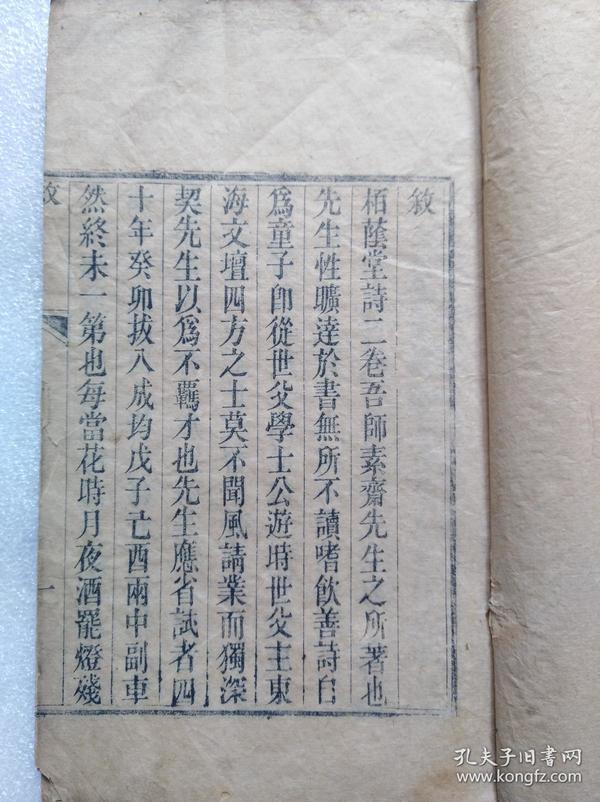 敘
栢蔭堂詩二卷吾師素齋先生之所著也
先生性曠達於書無所不讀嗜飲善詩自
爲童子卽從世父學士公遊時世父主東
海文壇四方之士莫不聞風請業而獨深
契先生以爲不羈才也先生應省試者四
十年癸卯拔入成均戊子己酉兩中副車
然終未一第也每當花時月夜酒罷燈殘
敘
一
孔夫子旧书网
www.kongfz.com